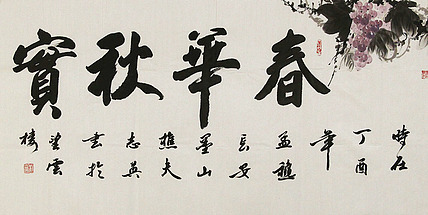 春華秋實
時在
丁酉
年
孟穐
長安
墨山
樵夫
志英
書於
望雲
樓